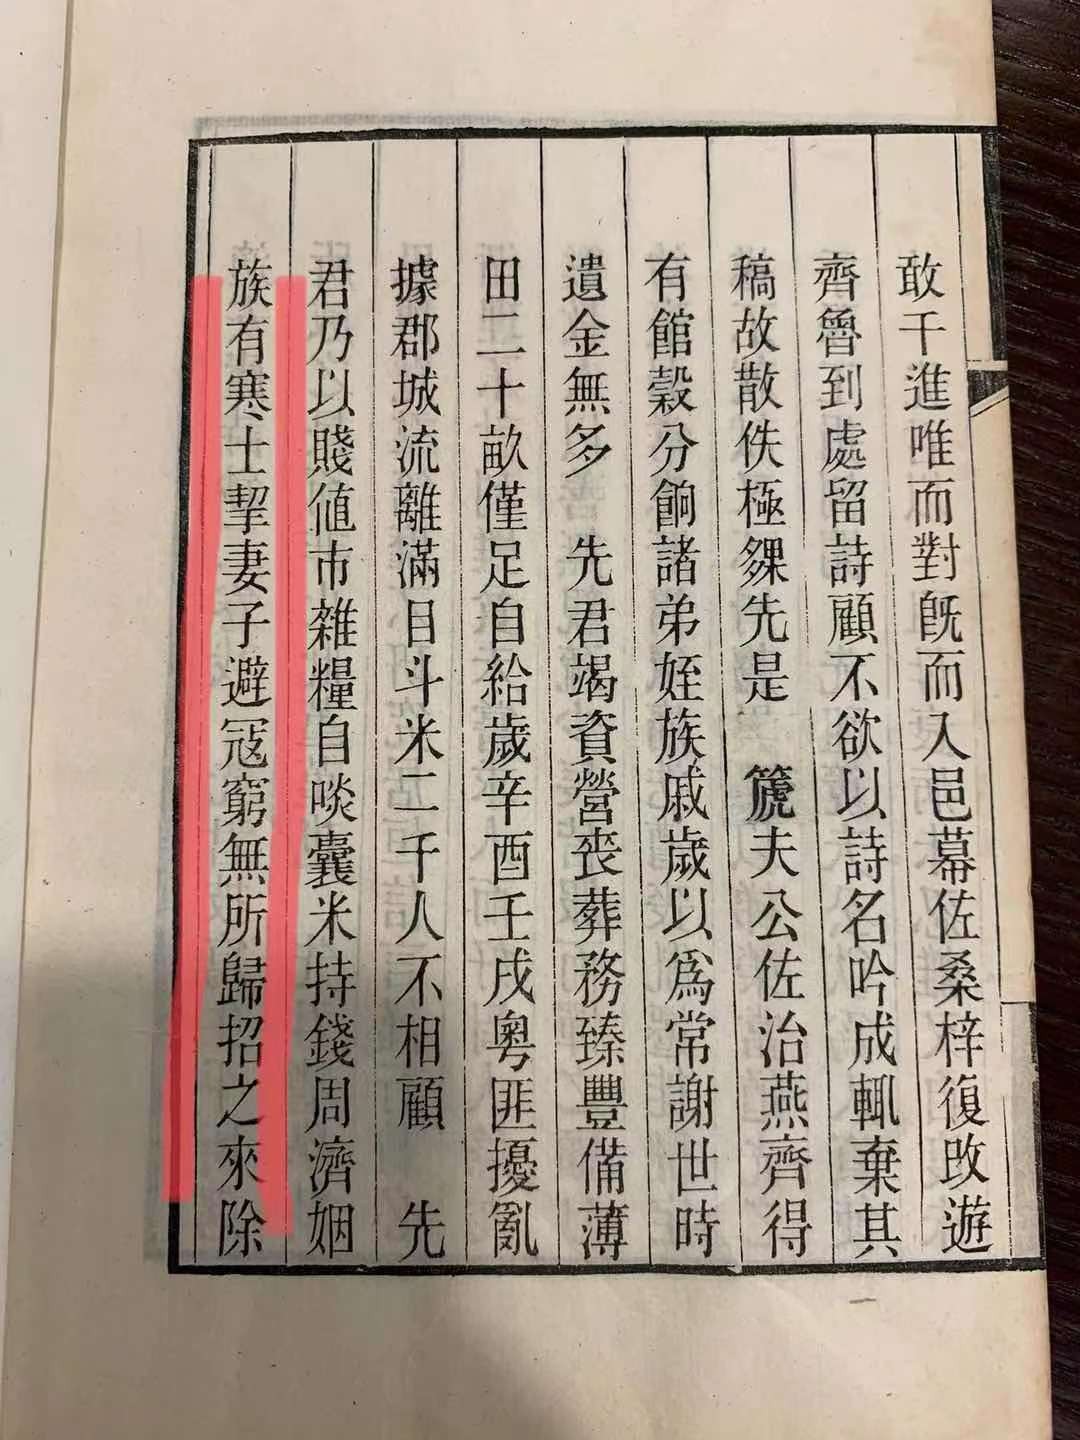 敢干進唯而對旣而入邑幕佐桑梓復改遊
齊魯到處留詩顧不欲以詩名吟成輒棄其
稿故散佚極夥先是　篪夫公佐治燕齊得
有館穀分餉諸弟姪族戚歲以爲常謝世時
遺金無多　先君竭資營喪葬務臻豐備薄
田二十畝僅足自給歲辛酉壬戌粤匪擾亂
據郡城流離滿目斗米二千人不相顧　先
君乃以賤値市雜糧自啖囊米持錢周濟姻
族有寒士挈妻子避冦窮無所歸招之來除